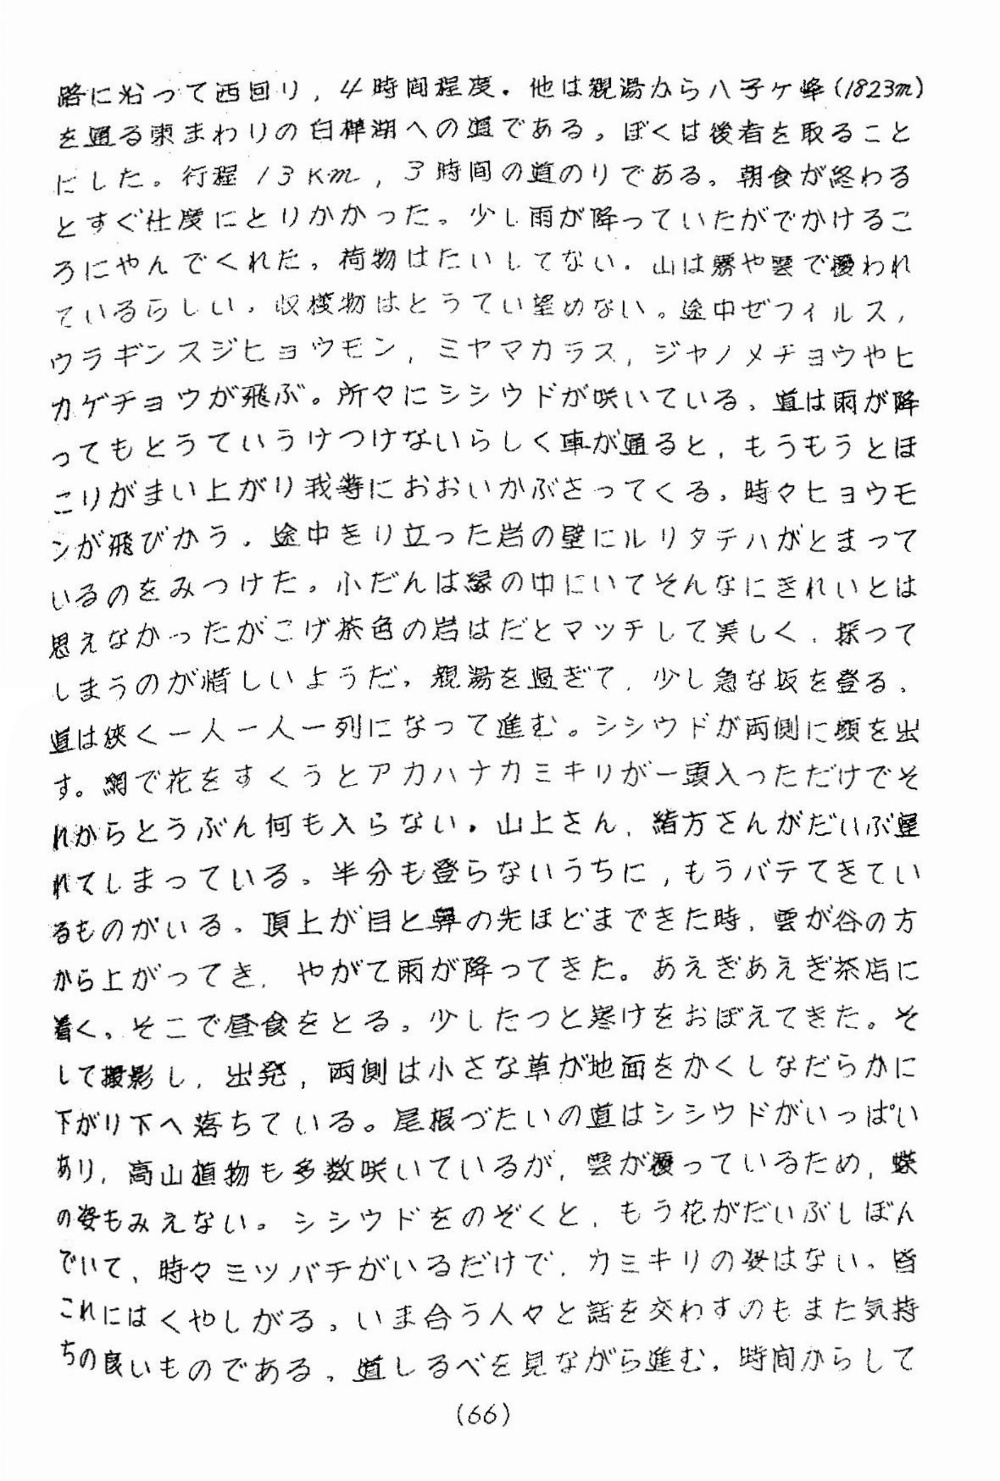 路に沿って西回り，4時間程度．他は親湯から八子ケ峰(1823m)
を通る東まわりの白樺湖への道である。ぼくは後者を取ること
にした。行程13Km，3時間の道のりである。朝食が終わる
とすぐ仕度にとりかかった。少し雨が降っていたがでかけるこ
ろにやんでくれた。荷物はたいしてない．山は霧や雲で覆われ
ているらしい。収穫物はとうてい望めない。途中ゼフィルス，
ウラギンスジヒョウモン，ミヤマカラス，ジャノメチョウやヒ
カゲチョウが飛ぶ。所々にシシウドが咲いている。道は雨が降
ってもとうていうけつけないらしく車が通ると，もうもうとほ
こりがまい上がり我等におおいかぶさってくる。時々ヒョウモ
ンが飛びかう．途中きり立った岩の壁にルリタテハがとまって
いるのをみつけた。ふだんは緑の中にいてそんなにきれいとは
思えなかったがこげ茶色の岩はだとマッチして美しく，採って
しまうのが惜しいようだ。親湯を過ぎて，少し急な坂を登る．
道は狭く一人一人一列になって進む。シシウドが両側に顔を出
す。網で花をすくうとアカハナカミキリが一頭入っただけでそ
れからとうぶん何も入らない．山上さん，緒方さんがだいぶ遅
れてしまっている。半分も登らないうちに，もうバテてきてい
るものがいる。頂上が目と鼻の先ほどまできた時，雲が谷の方
から上がってき，やがて雨が降ってきた。あえぎあえぎ茶店に
着く。そこで昼食をとる。少したつと寒けをおぼえてきた。そ
して撮影し，出発，両側は小さな草が地面をかくしなだらかに
下がり下へ落ちている。尾根づたいの道はシシウドがいっぱい
あり，高山植物も多数咲いているが，雲が覆っているため，蝶
の姿もみえない。シシウドをのぞくと，もう花がだいぶしぼん
でいて，時々ミツバチがいるだけで，カミキリの姿はない．皆
これにはくやしがる。いま合う人々と話を交わすのもまた気持
ちの良いものである。道しるべを見ながら進む．時間からして
(66)